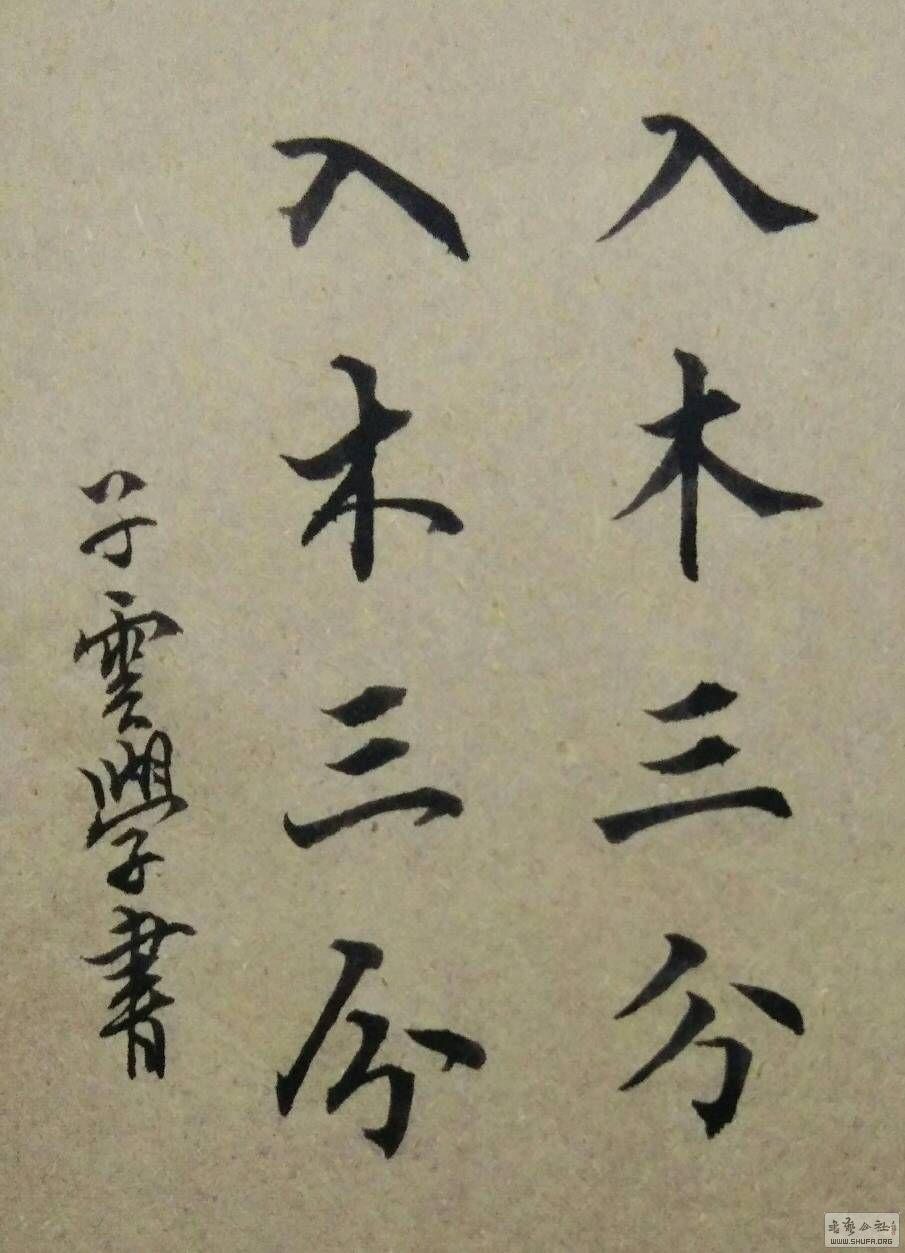 入木三分
入木三分
子雲學書
書藝公社
WWW.SHUFA.ORG